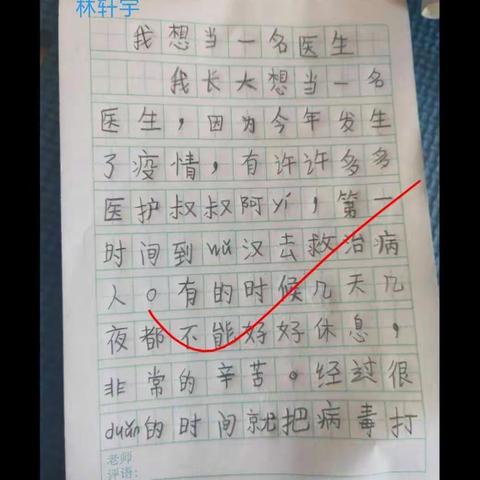 林轩宇
我想当一名医生
我长大想当一名
医生，因为今年发生
了疫情，有许许多多
医护叔叔阿yí，第一
时间到wǔ汉去救治病
人。有的时候几天几
夜都不能好好休息，
非常的辛苦。经过很
duǎn的时间就把病毒打
老师
评语：